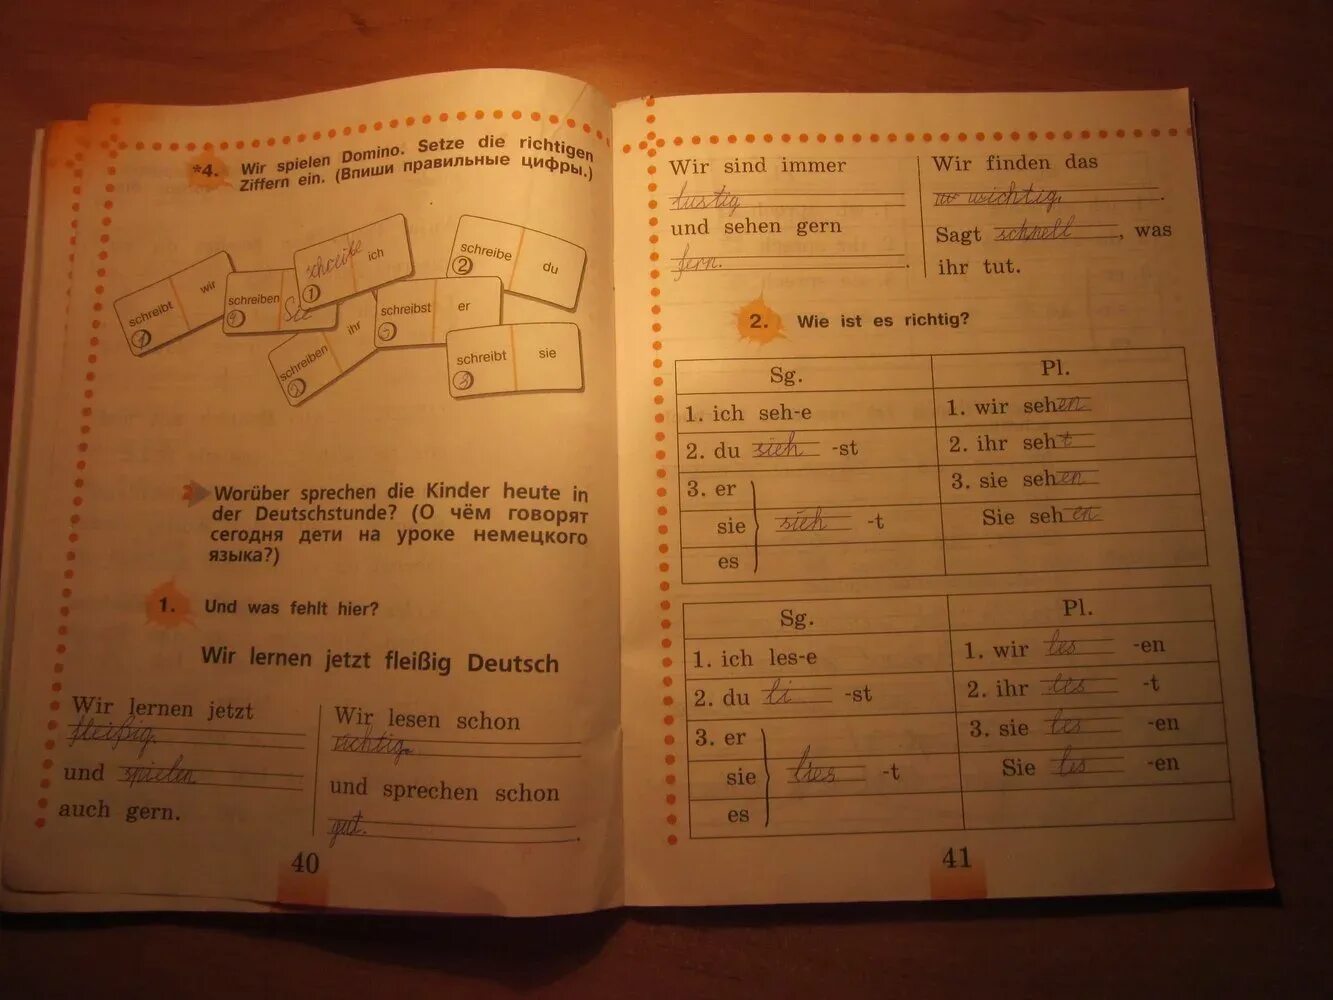 *4. Wir spielen Domino. Setze die richtigen
Ziffern ein. (Впиши правильные цифры.)
schreibt wir
schreiben Sie
schreibe ich
1
schreibe du
2
schreiben ihr
schreibst er
schreibt sie
3
Worüber sprechen die Kinder heute in
der Deutschstunde? (О чём говорят
сегодня дети на уроке немецкого
языка?)
1. Und was fehlt hier?
Wir lernen jetzt fleißig Deutsch
Wir lernen jetzt
fleißig
und spielen
auch gern.
Wir lesen schon
richtig
und sprechen schon
gut.
40
Wir sind immer
lustig
und sehen gern
fern.
Wir finden das
wichtig.
Sagt schnell, was
ihr tut.
2. Wie ist es richtig?
Sg. Pl.
1. ich seh-e 1. wir sehen
2. du sieh -st 2. ihr seht
3. er 3. sie sehen
sie sieh -t Sie sehen
es
Sg. Pl.
1. ich les-e 1. wir les -en
2. du li -st 2. ihr les -t
3. er 3. sie les -en
sie lies -t Sie les -en
es
41